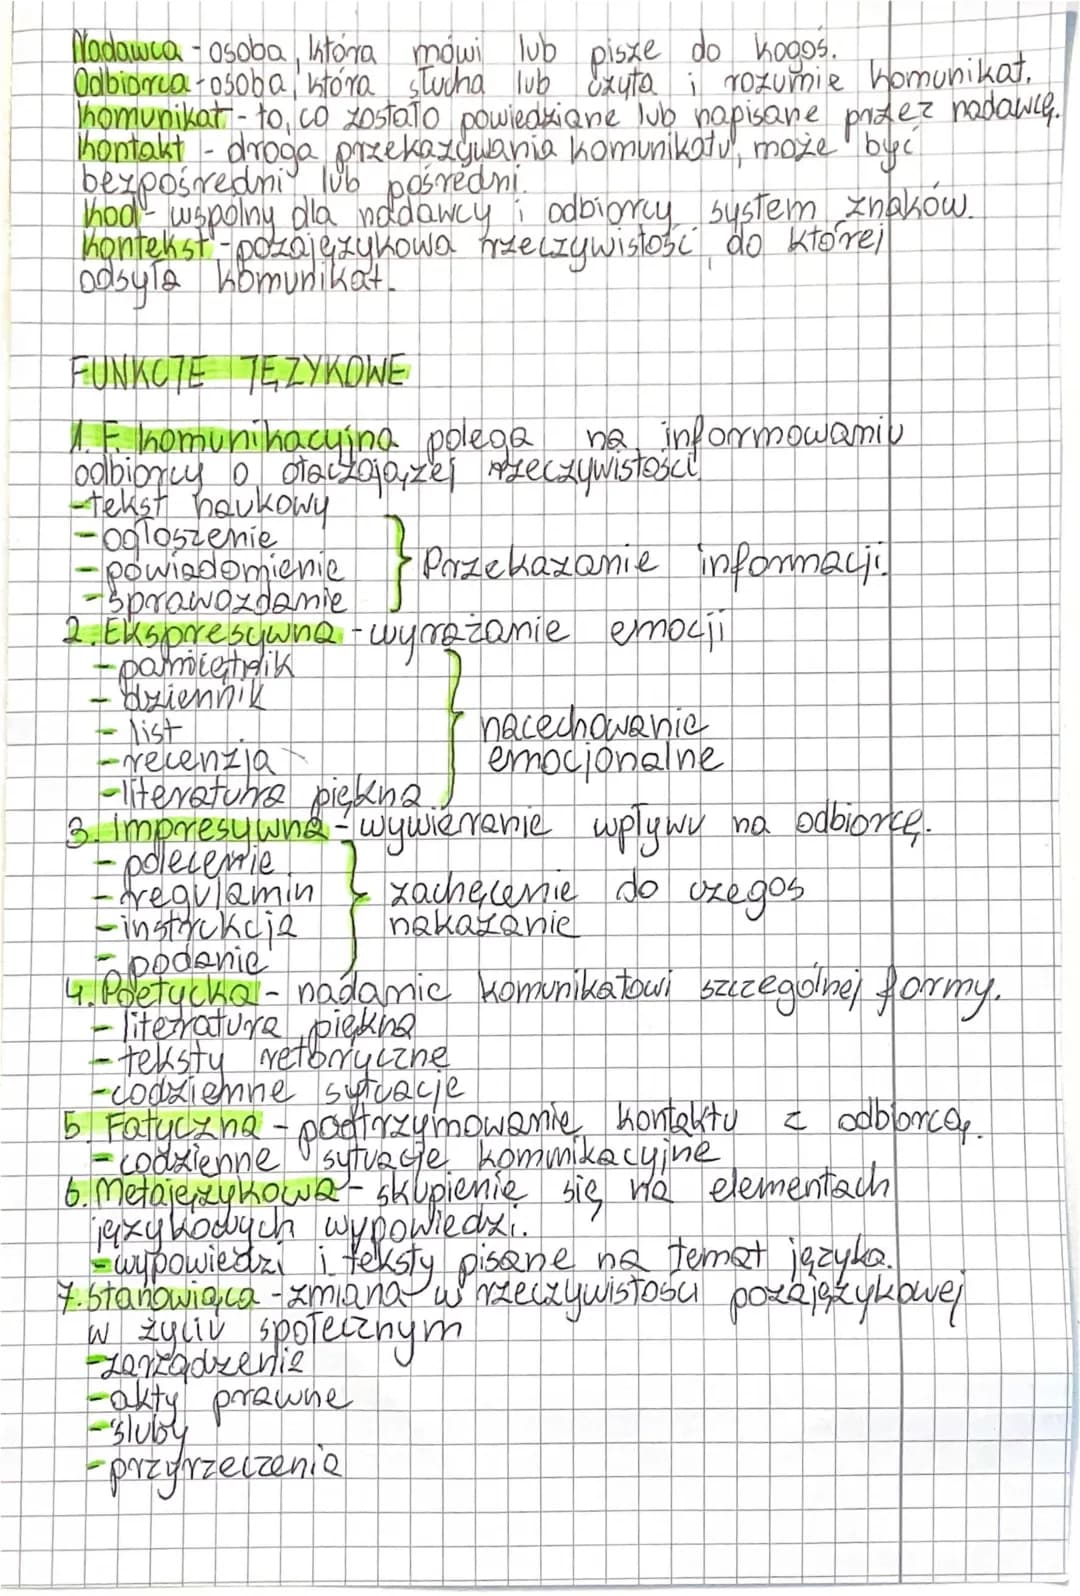 Nadawca - osoba, która mówi lub pisze do kogoś.
Odbiorca - osoba, która słucha lub czyta i rozumie komunikat.
Komunikat - to, co zostało powiedziane lub napisane przez nadawcę.
Kontakt - droga przekazywania komunikatu, może być
bezpośredni lub pośredni.
Kod - wspólny dla nadawcy i odbiorcy system znaków.
Kontekst - pozajęzykowa rzeczywistość, do której
odsyła komunikat.
FUNKCJE JĘZYKOWE
1. F. komunikacyjna polega na informowaniu
odbiorcy o otaczającej rzeczywistości
- tekst naukowy
- ogłoszenie
- powiadomienie } Przekazanie informacji.
- sprawozdanie
2. Ekspresywna - wyrażanie emocji
- pamiętnik
- dziennik
- list } nacechowanie
- recenzja emocjonalne
- literatura piękna
3. Impresywna - wywieranie wpływu na odbiorcę.
- polecenie
- regulamin } zachęcenie do czegoś
- instrukcja nakazanie
- podanie
4. Poetycka - nadanie komunikatowi szczególnej formy.
- literatura piękna
- teksty retoryczne
- codzienne sytuacje
5. Fatyczna - podtrzymowanie kontaktu z odbiorcą.
- codzienne sytuacje kommikacyjne
6. Metajęzykowa - skupienie się na elementach
językowych wypowiedzi.
- wypowiedzi i teksty pisane na temat języka.
7. Stanowiąca - zmiana w rzeczywistości pozajęzykowej
w życiu społecznym
- zarządzenie
- akty prawne
- śluby
- przyrzeczenia